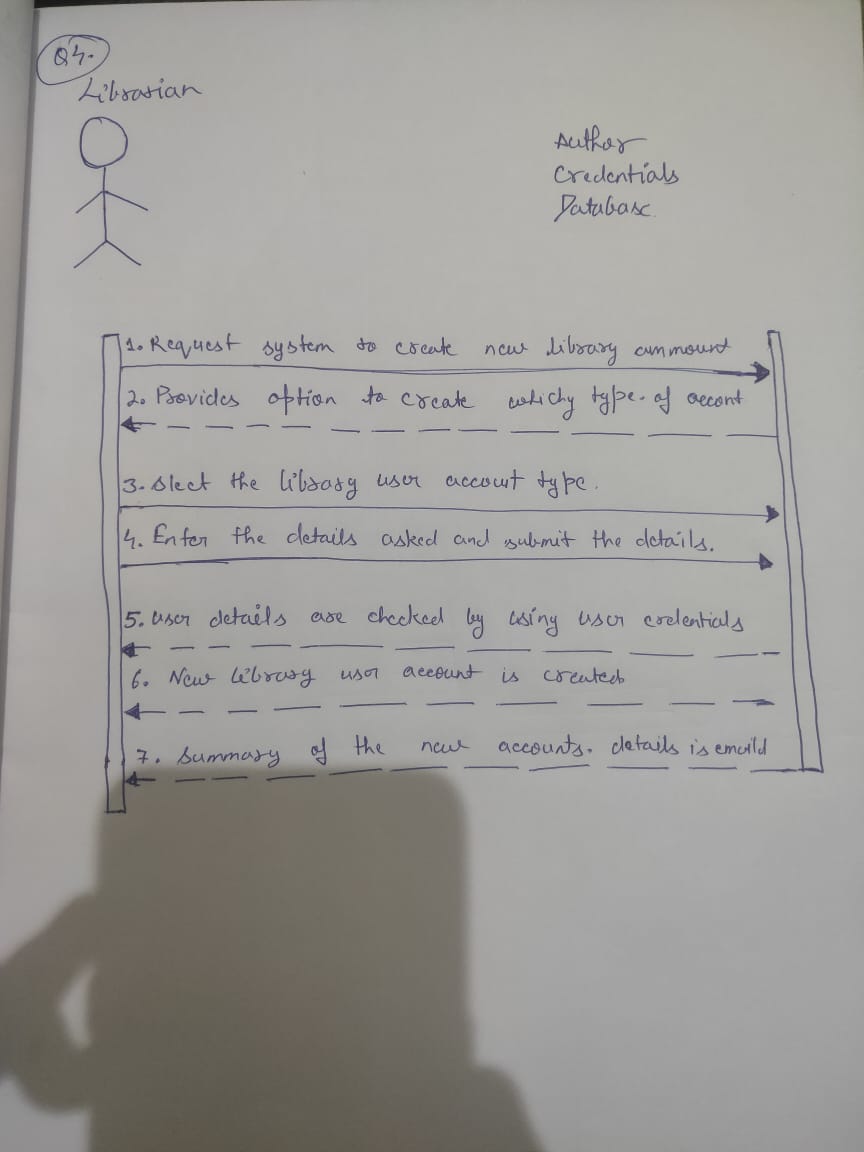 Q4.
Librarian
Author
Credentials
Database.
1. Request system to create new library ammount
2. Provides option to create whichy type of accont
3. Slect the library user account type.
4. Enter the details asked and submit the details.
5. User details are checked by using user credentials
6. New library user account is created
7. Summary of the new accounts. details is emaild